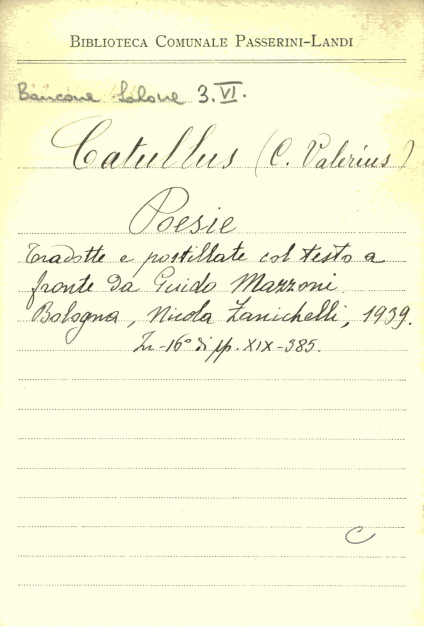 BIBLIOTECA COMUNALE PASSERINI-LANDI
Bancone Salone 3.VI.
Catullus (C. Valerius)
Poesie
Tradotte e postillate col testo a
fronte da Guido Mazzoni
Bologna, Nicola Zanichelli, 1939.
In-16° di pp. XIX-385.
C